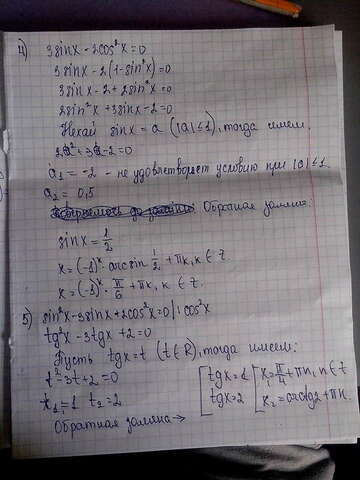 4) 3sinx - 2cos²x = 0
3sinx - 2(1-sin²x) = 0
3sinx - 2 + 2sin²x = 0
2sin²x + 3sinx - 2 = 0
Нехай sinx = a (|a| ≤ 1), тогда имеем.
2a² + 3a - 2 = 0
a₁ = -2 - не удовлетворяет условию при |a| ≤ 1.
a₂ = 0,5
Обратная замена.
sinx = 1/2
x = (-1)^k · arcsin 1/2 + πk, k ∈ Z.
x = (-1)^k · π/6 + πk, k ∈ Z.
5) sin²x - 3sinx + 2cos²x = 0 | : cos²x
tg²x - 3tgx + 2 = 0
Пусть tgx = t (t ∈ R), тогда имеем:
t² - 3t + 2 = 0
t₁ = 1 t₂ = 2
Обратная замена →
[ tgx = 1 [ x₁ = π/4 + πn, n ∈ Z
tgx = 2 x₂ = arctg2 + πk